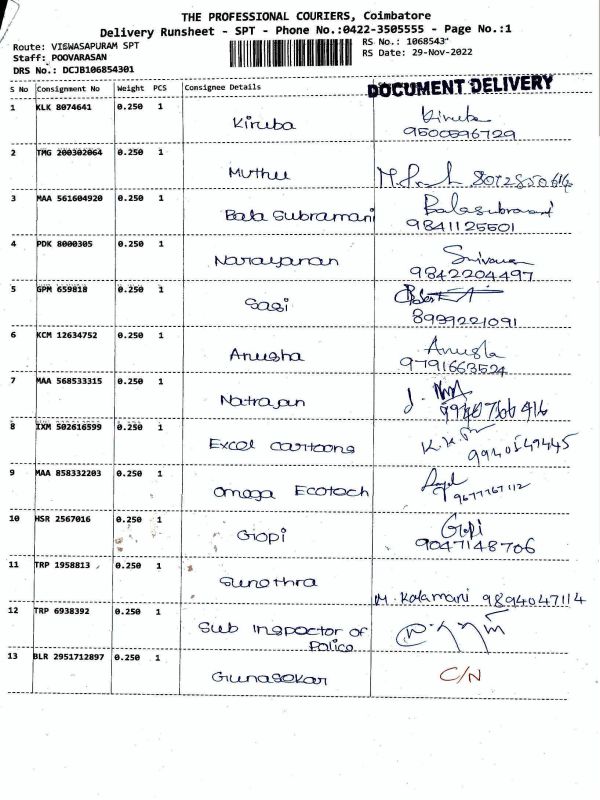 THE PROFESSIONAL COURIERS, Coimbatore
Delivery Runsheet - SPT - Phone No.:0422-3505555 - Page No.:1
Route: VISWASAPURAM SPT
RS No.: 1068543
Staff: POOVARASAN
RS Date: 29-Nov-2022
DRS No.: DCJB106854301
S No Consignment No Weight PCS Consignee Details
DOCUMENT DELIVERY
1 KLK 8074641 0.250 1 Kiruba Kiruba
9500596729
2 TMG 200302064 0.250 1 Muthu 8072850616
3 MAA 561604920 0.250 1 Bala Subramani
9841125501
4 PDK 8000305 0.250 1 Narayanan
9842204497
5 GPM 659818 0.250 1 Sasi
8999221091
6 KCM 12634752 0.250 1 Anusha Anusha
9791663524
7 MAA 568533315 0.250 1 Natrajan
8 IXM 502616599 0.250 1 Excel cartoons
9940549445
9 MAA 858332203 0.250 1 Omega Ecotech
9677767112
10 HSR 2567016 0.250 1 Gopi Gopi
9047148706
11 TRP 1958813 0.250 1 Sunethra M. Kalamani 9894047114
12 TRP 6938392 0.250 1 Sub Inspector of
Police
13 BLR 2951712897 0.250 1 Gunasekar C/N